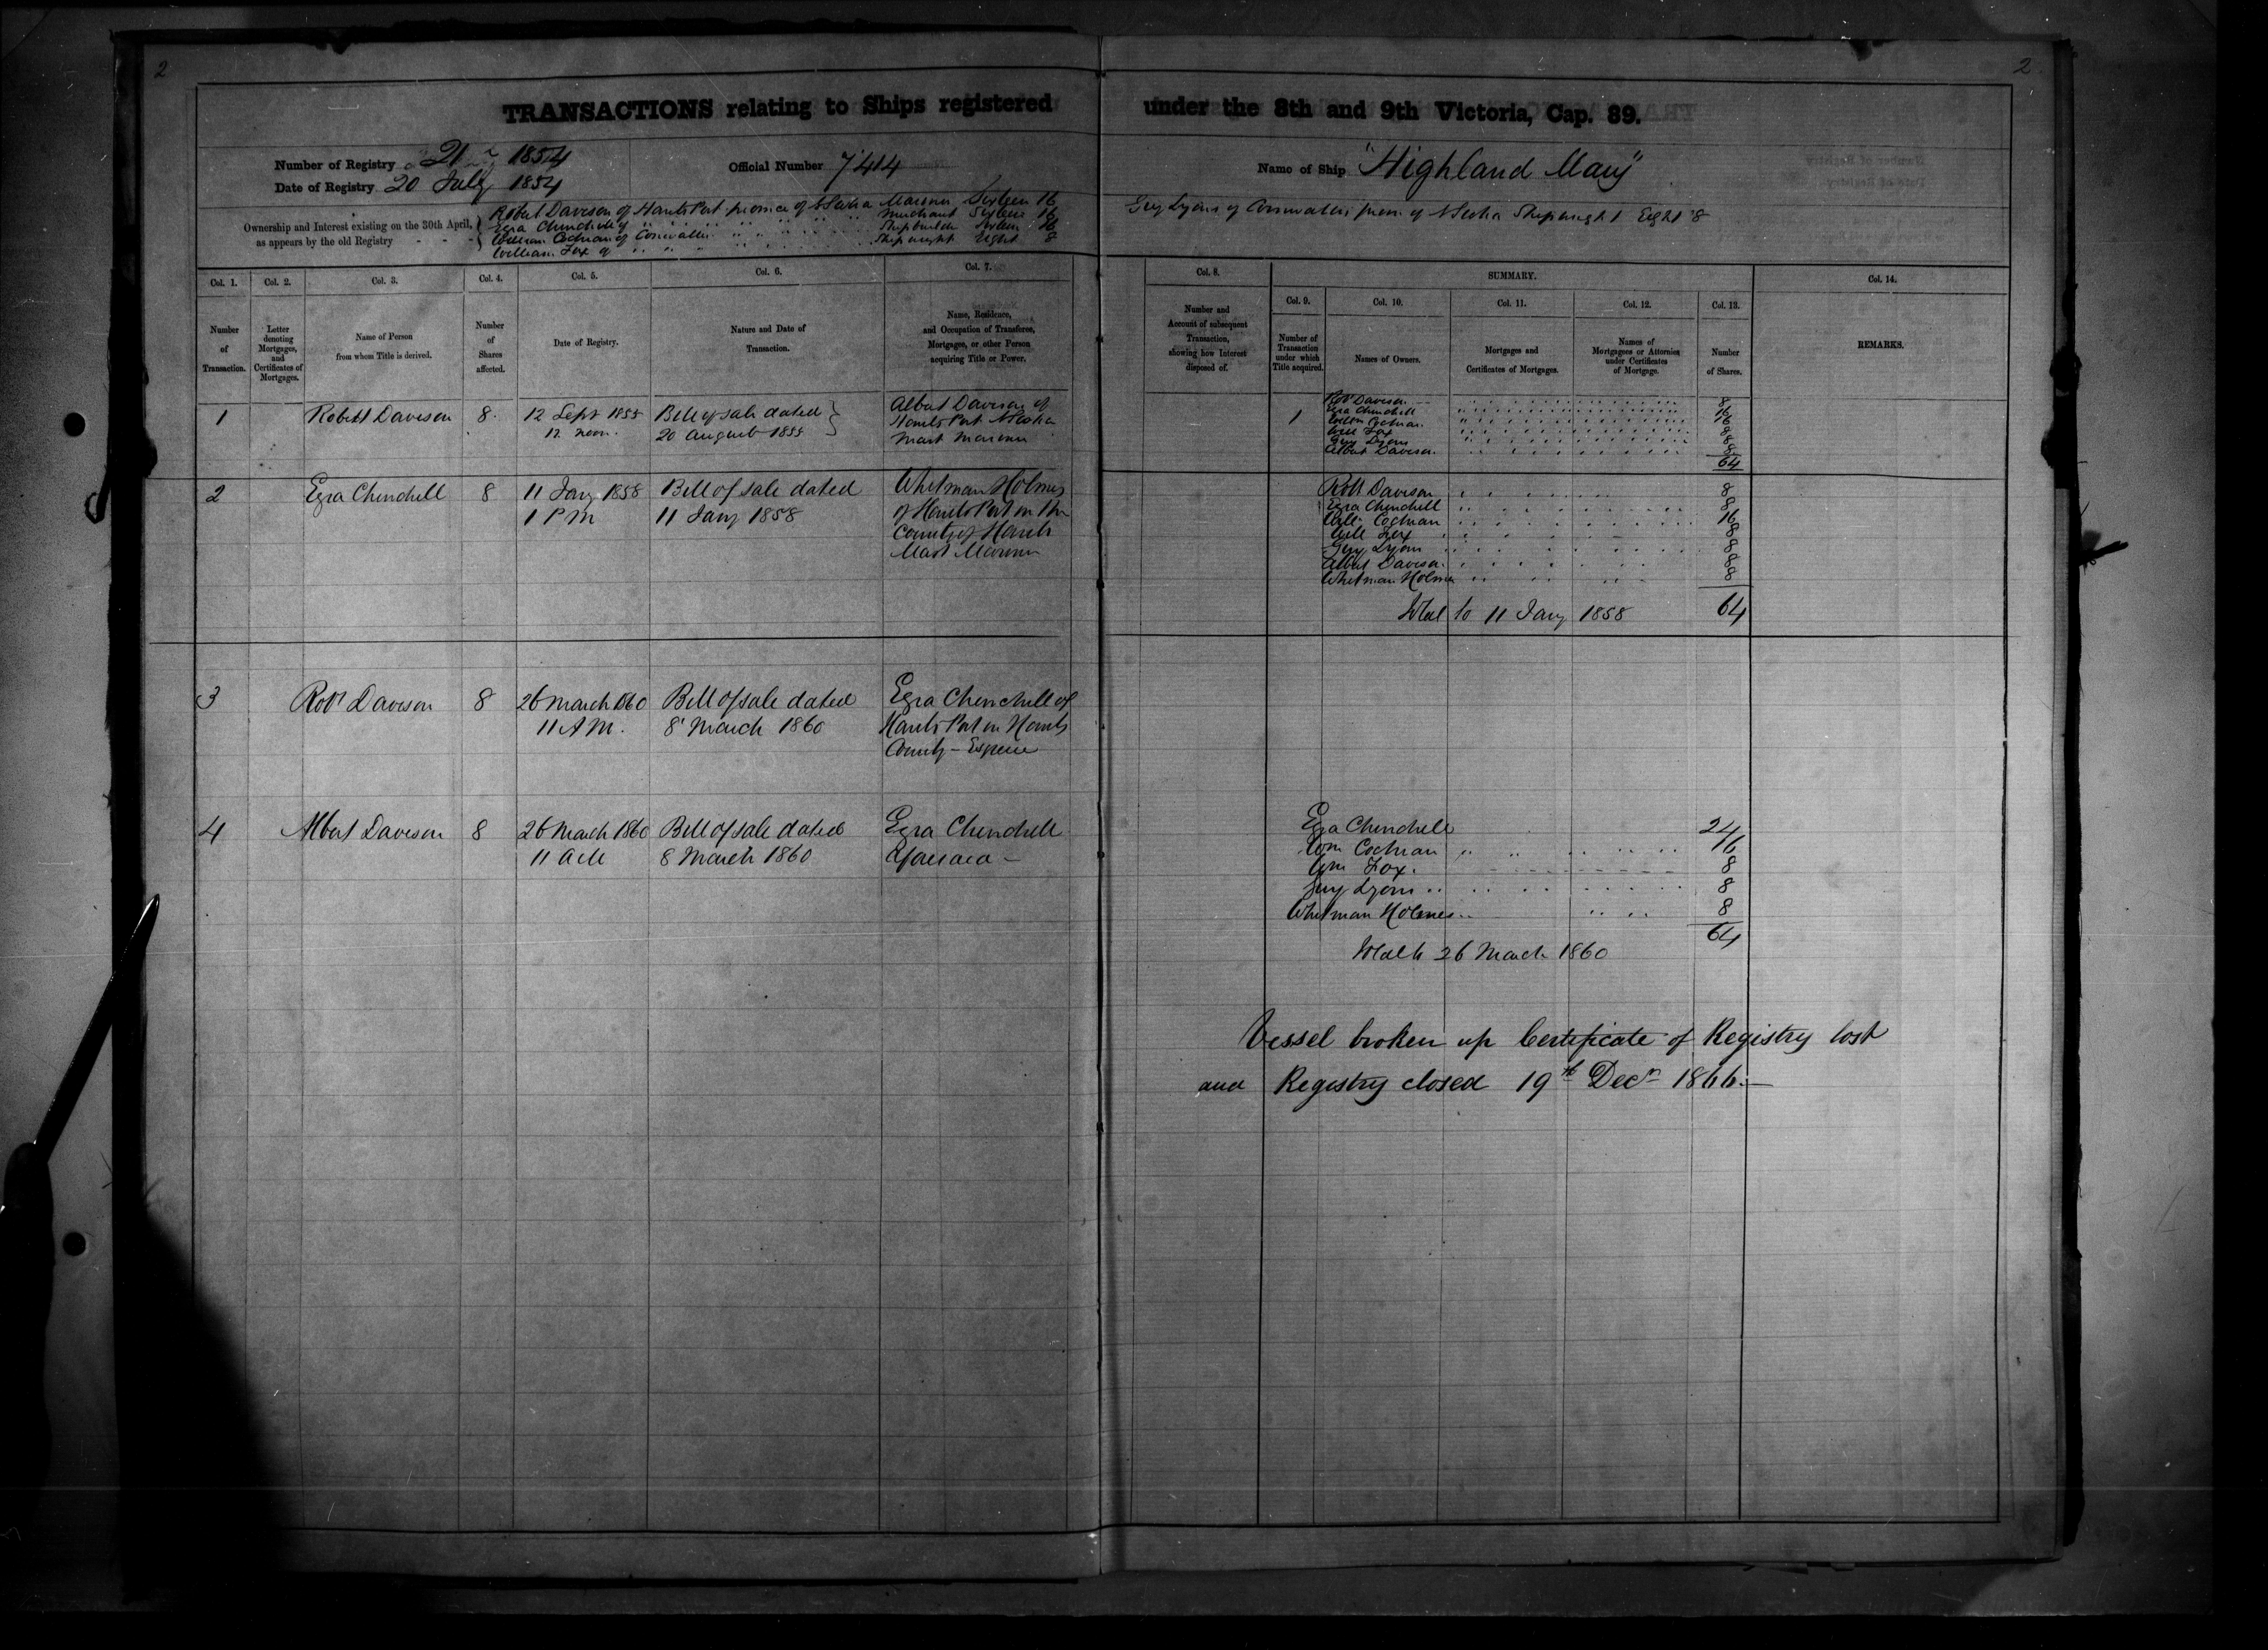 2
2
TRANSACTIONS relating to Ships registered under the 8th and 9th Victoria, Cap. 89.
Number of Registry 21 1854
Date of Registry 20 July 1854
Official Number 7414
Name of Ship "Highland Mary"
Ownership and Interest existing on the 30th April, as appears by the old Registry
Robert Davison of Hants Port province of N Scotia Mariner Sixteen 16
Ezra Churchill of " " " " Merchant Sixteen 16
William Cochran of Cornwallis " " " " Shipbuilder Sixteen 16
William Fox of " " " " Shipwright Eight 8
Guy Lyons of Cornwallis prov. of N Scotia Shipwright Eight 8
Col. 1.
Number of Transaction.
Col. 2.
Letter denoting Mortgages, and Certificates of Mortgages.
Col. 3.
Name of Person from whom Title is derived.
Col. 4.
Number of Shares affected.
Col. 5.
Date of Registry.
Col. 6.
Nature and Date of Transaction.
Col. 7.
Name, Residence, and Occupation of Transferee, Mortgagee, or other Person acquiring Title or Power.
Col. 8.
Number and Account of subsequent Transaction, showing how Interest disposed of.
SUMMARY.
Col. 9.
Number of Transaction under which Title acquired.
Col. 10.
Names of Owners.
Col. 11.
Mortgages and Certificates of Mortgages.
Col. 12.
Names of Mortgagees or Attornies under Certificates of Mortgage.
Col. 13.
Number of Shares.
Col. 14.
REMARKS.
1 Robert Davison 8 12 Sept 1855 Bill of sale dated Albert Davison of
12 noon 20 August 1855 Hants Port N Scotia
Mast Mariner
1 Robt Davison 8
Ezra Churchill 16
Willm Cochran 16
Will Fox 8
Guy Lyons 8
Albert Davison 8
64
2 Ezra Churchill 8 11 Jany 1858 Bill of sale dated Whitman Holmes
1 PM 11 Jany 1858 of Hants Port in the
County of Hants
Mast Mariner
Robt Davison 8
Ezra Churchill 8
Will. Cochran 16
Will Fox 8
Guy Lyons 8
Albert Davison 8
Whitman Holmes 8
Total to 11 Jany 1858 64
3 Robt Davison 8 26 March 1860 Bill of sale dated Ezra Churchill of
11 AM. 8 March 1860 Hants Port in Hants
County - Esquire
4 Albert Davison 8 26 March 1860 Bill of sale dated Ezra Churchill
11 AM 8 March 1860 aforesaid -
Ezra Churchill 24
Wm Cochran 16
Wm Fox 8
Guy Lyons 8
Whitman Holmes 8
64
Total to 26 March 1860
Vessel broken up Certificate of Registry lost
and Registry closed 19th Decr 1866.-